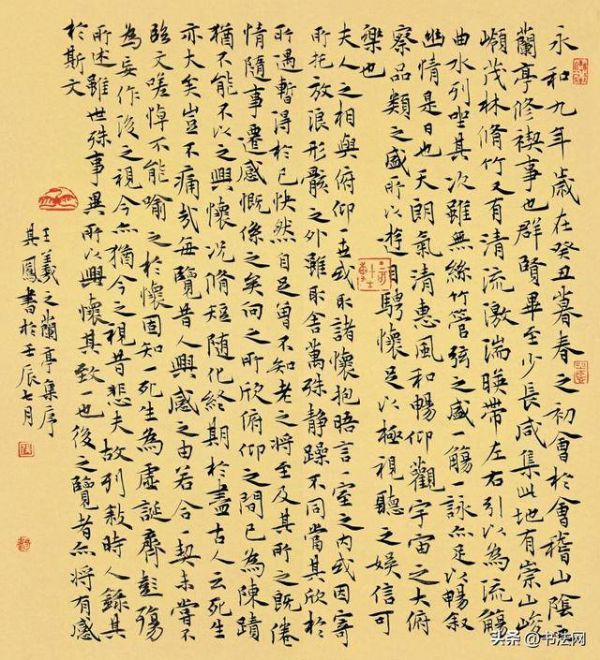 永和九年歲在癸丑暮春之初會於會稽山陰之
蘭亭修禊事也群賢畢至少長咸集此地有崇山峻
嶺茂林脩竹又有清流激湍暎帶左右引以為流觴
曲水列坐其次雖無絲竹管弦之盛一觴一詠亦足以暢叙
幽情是日也天朗氣清惠風和暢仰觀宇宙之大俯
察品類之盛所以遊目騁懷足以極視聽之娛信可
樂也
夫人之相與俯仰一世或取諸懷抱晤言一室之內或因寄
所託放浪形骸之外雖取舍萬殊靜躁不同當其欣於
所遇暫得於己快然自足曾不知老之將至及其所之既倦
情隨事遷感慨係之矣向之所欣俯仰之間已為陳蹟
猶不能不以之興懷況脩短隨化終期於盡古人云死生
亦大矣豈不痛哉每覽昔人興感之由若合一契未嘗不
臨文嗟悼不能喻之於懷固知一死生為虛誕齊彭殤
為妄作後之視今亦猶今之視昔悲夫故列敘時人錄其
所述雖世殊事異所以興懷其致一也後之覽者亦將有感
於斯文
王羲之蘭亭集序
其鳳書於壬辰七月
头条 @书法网